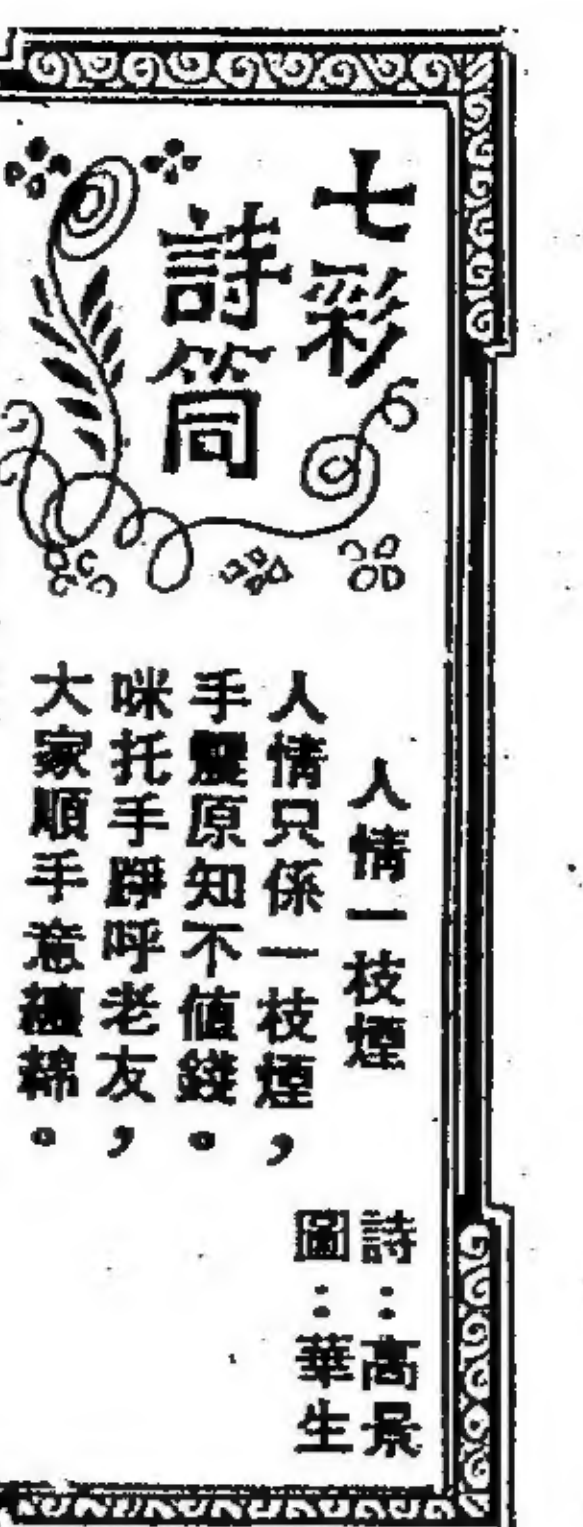 七彩
詩筒
人情一枝煙
人情只係一枝煙，
手震原知不值錢。
咪托手踭呼老友，
大家順手意纏綿。
詩：高景
圖：華生